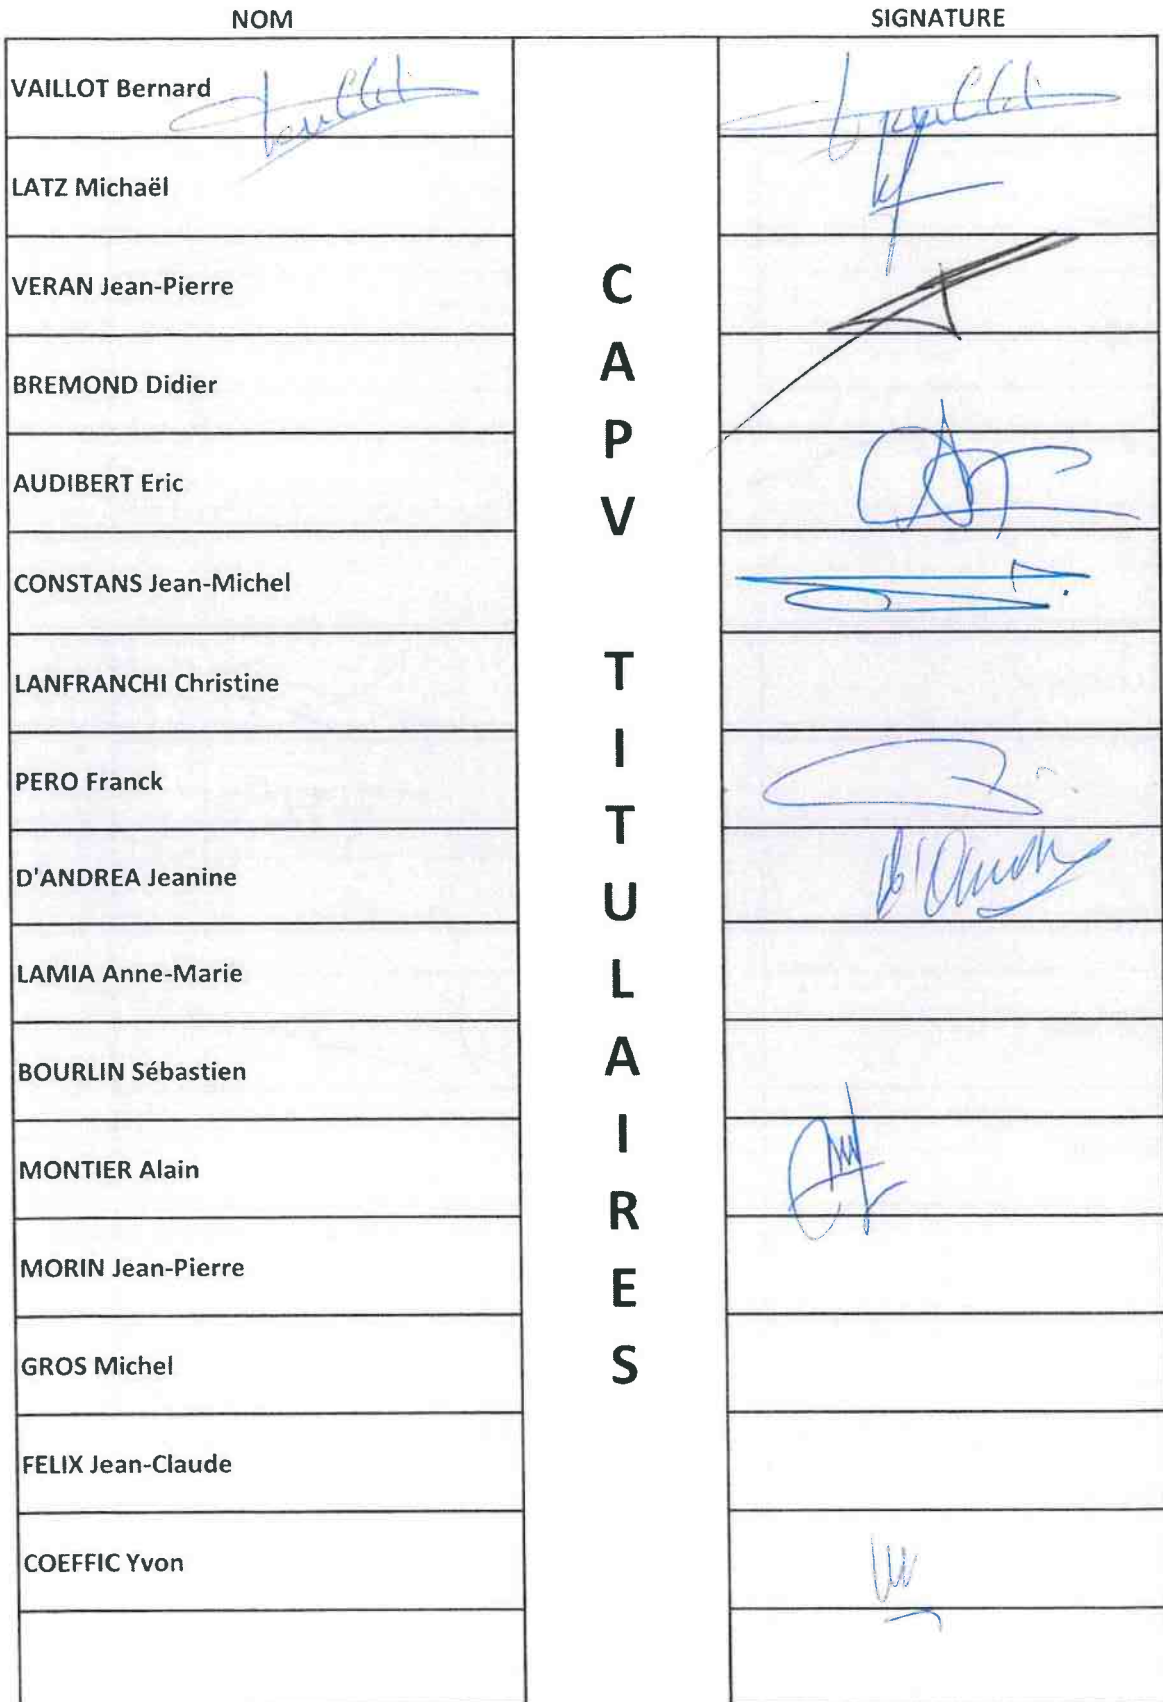 NOM SIGNATURE
VAILLOT Bernard
LATZ Michaël
VERAN Jean-Pierre
BREMOND Didier
AUDIBERT Eric
CONSTANS Jean-Michel
LANFRANCHI Christine
PERO Franck
D'ANDREA Jeanine
LAMIA Anne-Marie
BOURLIN Sébastien
MONTIER Alain
MORIN Jean-Pierre
GROS Michel
FELIX Jean-Claude
COEFFIC Yvon
CAPV TITULAIRES